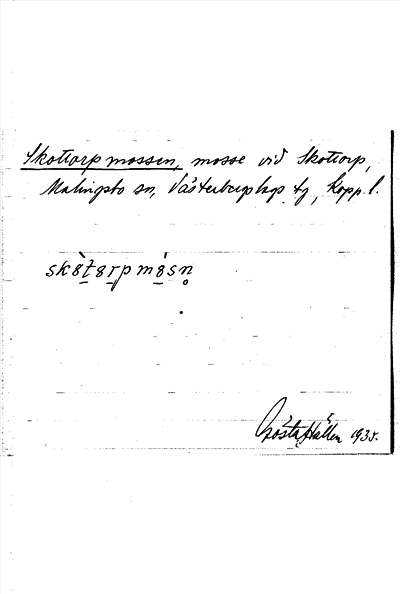 Skottorpmossen, mosse vid Skottorp,
Malingsbo sn, Västerbergslags tg, Kopp. l.
Gösta Hallén 1935.